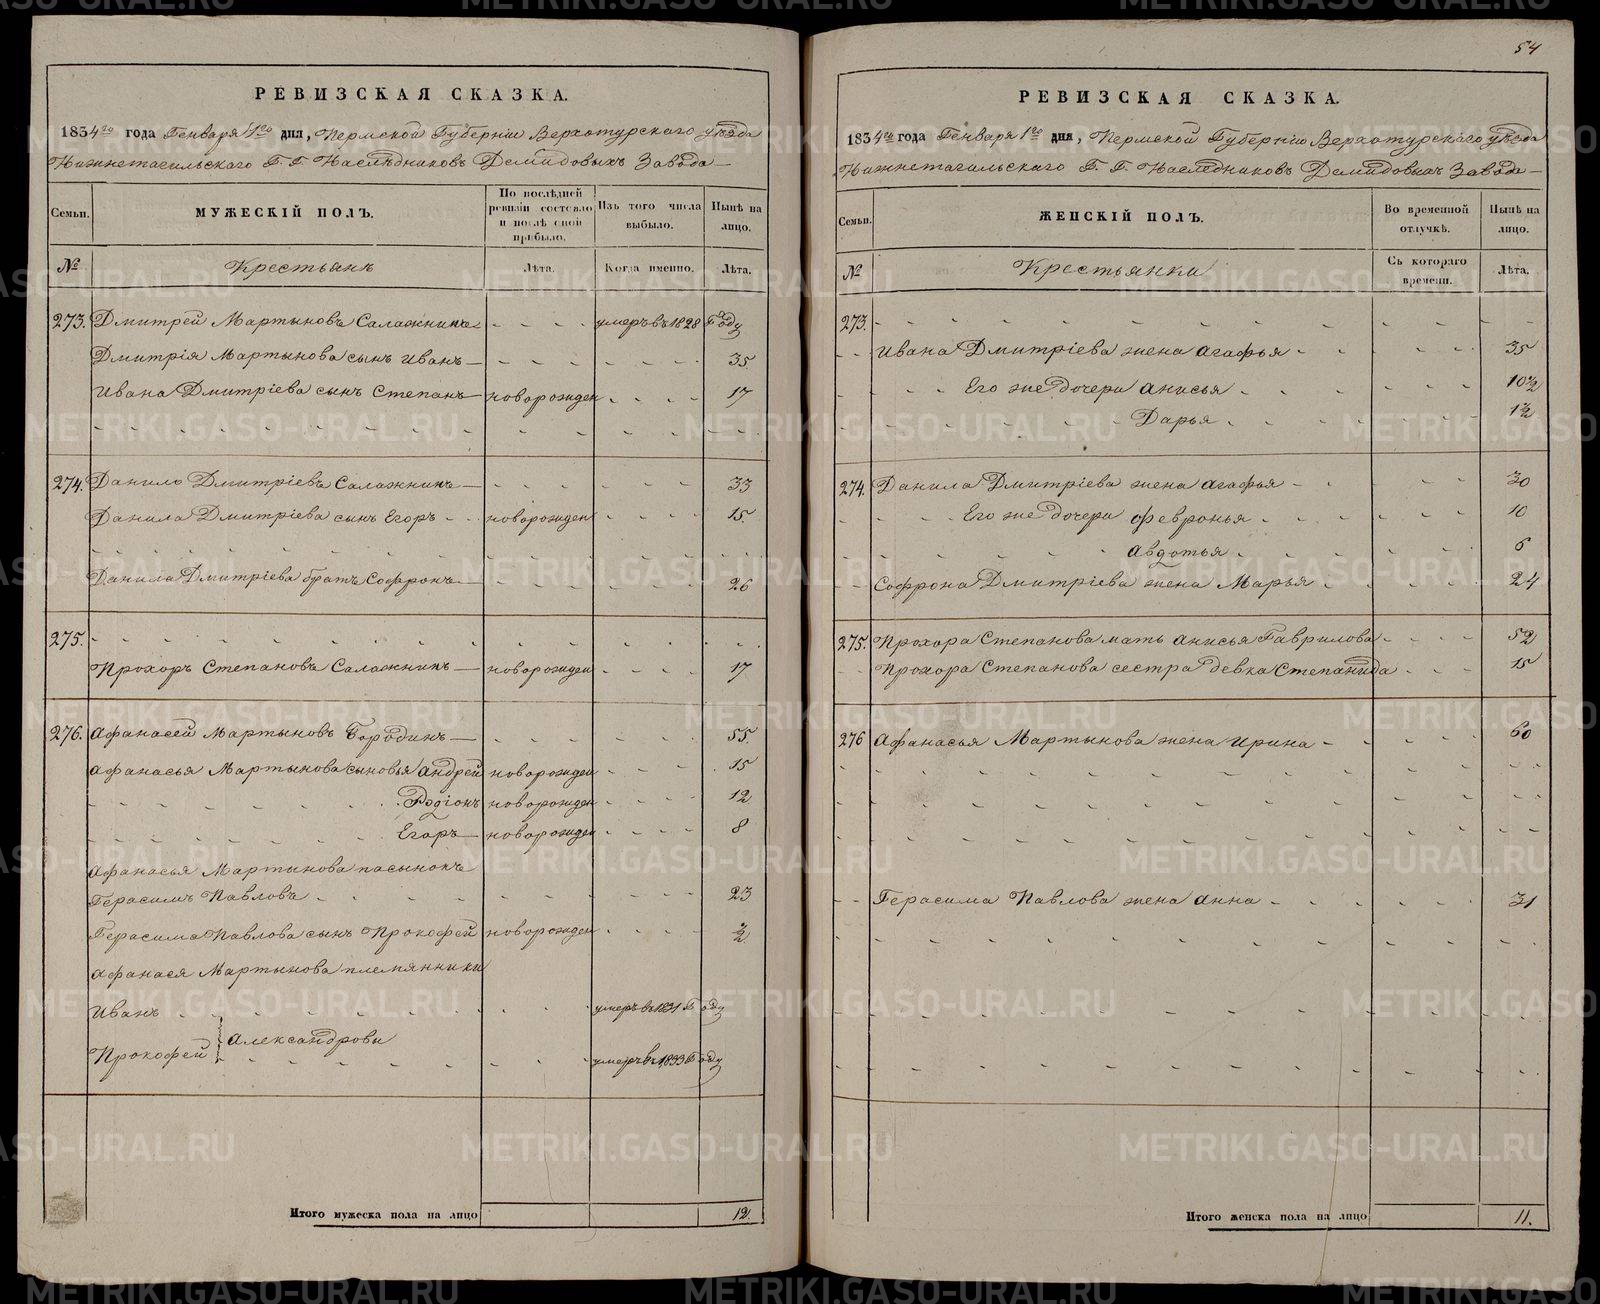 РЕВИЗСКАЯ СКАЗКА.
1834го года Генваря 1го дня, Пермской Губернiи Верхотурскаго уѣзда
Нижнетагильскаго Г. Г. Наслѣдниковъ Демидовыхъ Завода
Семьи.
МУЖЕСКIЙ ПОЛЪ.
По послѣдней ревизiи состояло и послѣ оной прибыло.
Изъ того числа выбыло.
Нынѣ на лицо.
№
Крестьянъ
Лѣта.
Когда именно.
Лѣта.
273. Дмитрей Мартыновъ Салажнинъ умеръ въ 1828 Году
Дмитрiя Мартынова сынъ Иванъ 35
Ивана Дмитрiева сынъ Степанъ новорожден 17
274. Данило Дмитрiевъ Салажнинъ 33
Данила Дмитрiева сынъ Егоръ новорожден 15.
Данила Дмитрiева братъ Софронъ 26
275.
Прохоръ Степановъ Салажнинъ новорожден 17
276. Афанасей Мартыновъ Бородинъ 55.
Афанасья Мартынова сыновья Андрей новорожден 15
Родiонъ новорожден 12
Егоръ новорожден 8
Афанасья Мартынова пасынокъ
Герасимъ Павловъ 23
Герасима Павлова сынъ Прокофей новорожден ½
Афанасея Мартынова племянники
Иванъ умеръ въ 1831 Году
Александровы
Прокофей умеръ въ 1833 Году
Итого мужеска пола на лицо 12.
54
РЕВИЗСКАЯ СКАЗКА.
1834го года Генваря 1го дня, Пермской Губернiи Верхотурскаго уѣзда
Нижнетагильскаго Г. Г. Наследниковъ Демидовыхъ Завода
Семьи.
ЖЕНСКIЙ ПОЛЪ.
Во временной отлучкѣ.
Нынѣ на лицо.
№
Крестьянки
Съ котораго времени.
Лѣта.
273.
Ивана Дмитрiева жена Агафья 35
Его же дочери Анисья 10½
Дарья 1½
274. Данила Дмитрiева жена Агафья 30
Его же дочери Февронья 10
Авдотья 6
Софрона Дмитрiева жена Марья 24
275. Прохора Степанова мать Анисья Гаврилова 52
Прохора Степанова сестра девка Степанида 15
276 Афанасья Мартынова жена Ирина 60
Герасима Павлова жена Анна 31
Итого женска пола на лицо 11.
METRIKI.GASO-URAL.RU